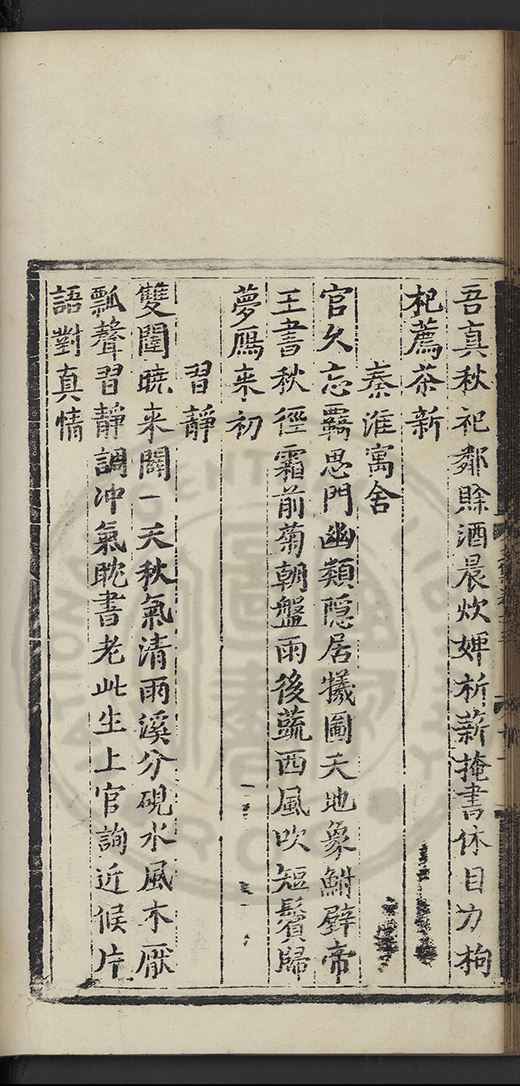 吾真秋祀鄰賒酒晨炊婢析薪掩書休目力枸
杞薦茶新
秦淮寓舍
官久忘羇思門幽類隱居犧圖天地象鮒壁帝
王書秋徑霜前菊朝盤雨後蔬西風吹短鬢歸
夢鴈来初
習靜
雙闔曉来關一天秋氣清雨溪分硯水風木厭
瓢聲習靜調冲氣眈書老此生上官詢近候片
語對真情